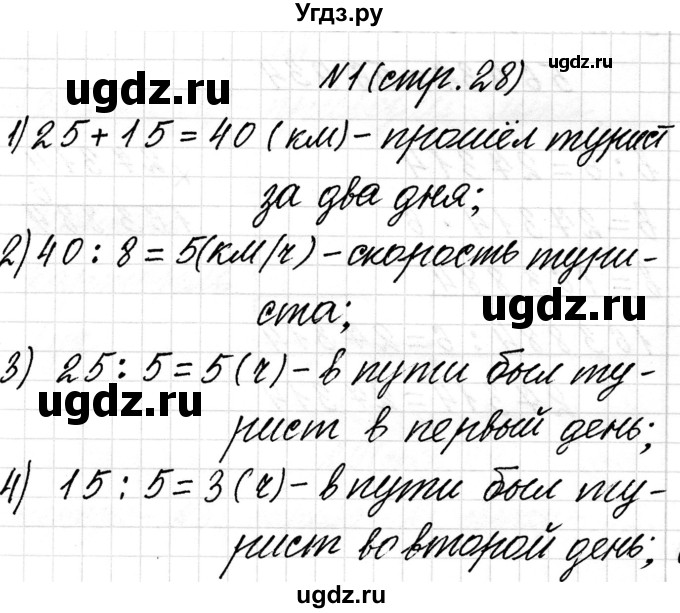 Угдз.ру
ugdz.ru
ugdz.ru
N1 (стр. 28)
1) 25 + 15 = 40 (км) - прошёл турист
за два дня;
2) 40 : 8 = 5 (км/ч) - скорость тури-
ста;
ugdz.ru
3) 25 : 5 = 5 (ч) - в пути был ту-
ugdz.ru
рист в первый день;
4) 15 : 5 = 3 (ч) - в пути был ту-
рист во второй день;
ugdz.ru